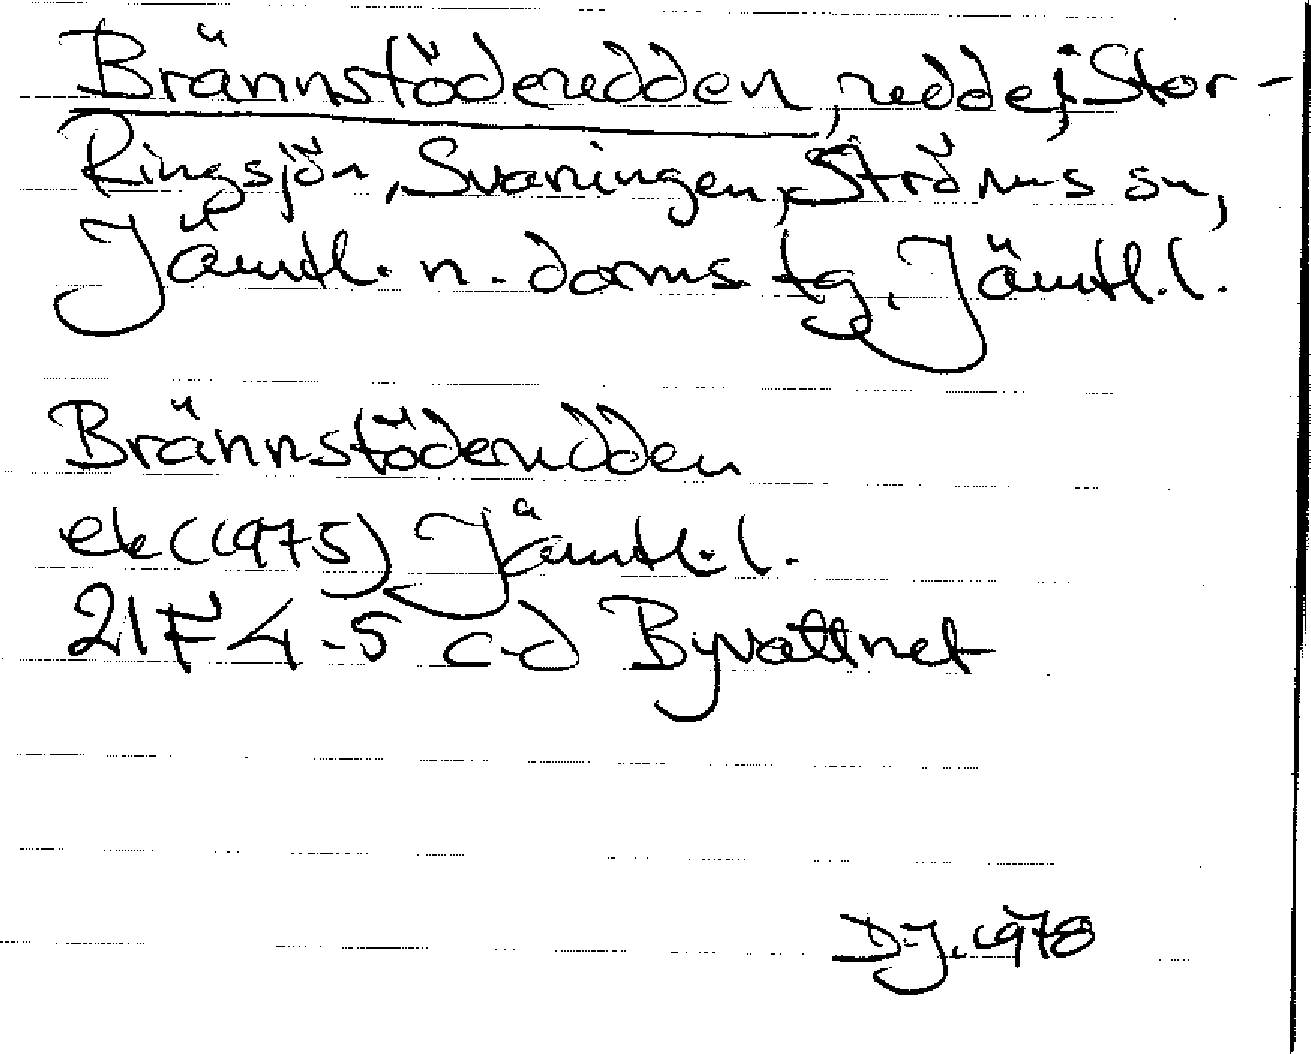 Brännstöderedden, redde i Stor-
Ringsjön, Svaningen, Ströms sn,
Jämtl. n. doms tg, Jämtl. l.
Brännstöderedden
ek (1975) Jämtl. l.
21F 4-5 c-d Byvattnet
D.J. 1978